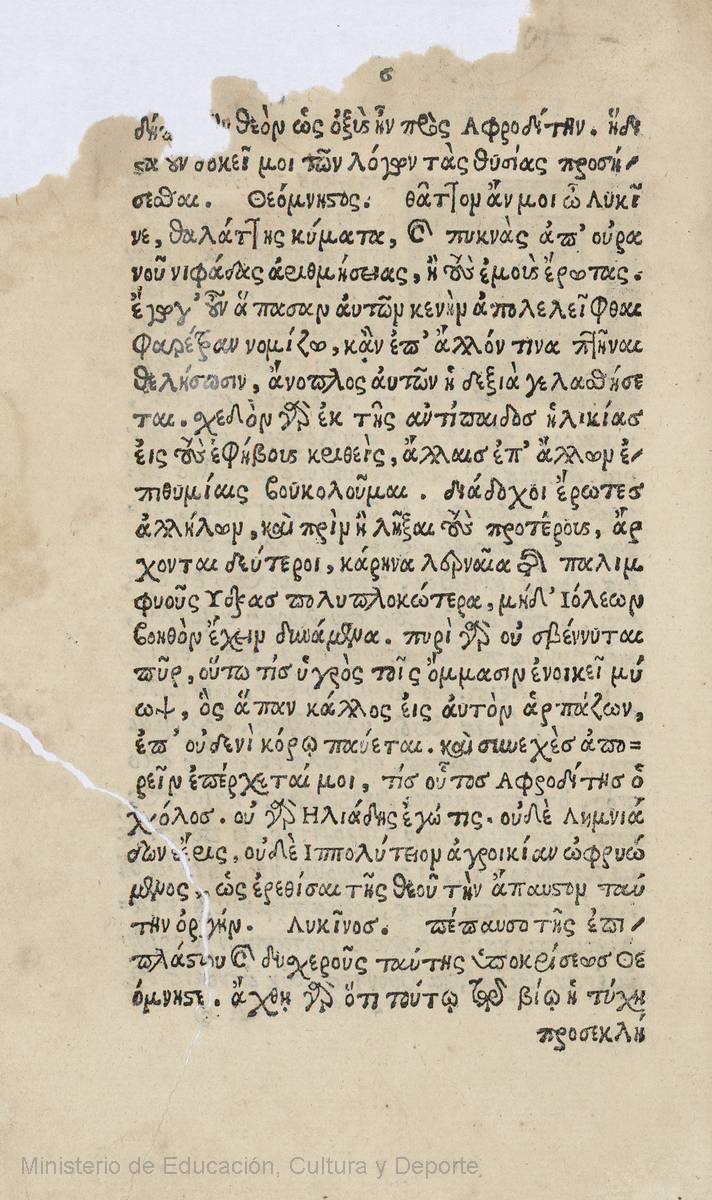 ϛ
θεὸν ὡς ὀξὺς ἦν πρὸς Αφροδίτην. ἥδι
στα οὖν δοκεῖ μοι τῶν λόγων τὰς θυσίας προσή/
σεσθαι. Θεόμνηστος. θᾶττον ἄν μοι ὦ Λυκῖ
νε, θαλάττης κύματα, καὶ πυκνὰς ἀπ' οὐρα
νοῦ νιφάδας ἀριθμήσειας, ἢ τοὺς ἐμοὺς ἔρωτας.
ἔγωγ' οὖν ἅπασαν ἀυτῶν κενὴν ἀπολελεῖφθαι
φαρέτραν νομίζω, κἂν ἐπ' ἄλλόν τινα πτῆναι
θελήσωσιν, ἄνοπλος ἀυτῶν ἡ δεξιὰ γελασθήσε
ται. σχεδὸν γὰρ ἐκ τῆς αντίπαιδος ἡλικίας
ἐις τοὺς ἐφήβους κριθεὶς, ἄλλαις ἐπ' ἄλλων ἐ/
πιθυμίαις βουκολοῦμαι. διάδοχοι ἔρωτες
ἀλλήλων, καὶ πρὶν ἢ λῆξαι τοὺς προτέρους, ἄρ
χονται δεύτεροι, κάρηνα λερναῖα τῆς παλιμ
φυοῦς Υδρας πολυπλοκώτερα, μήδ' Ιόλεων
βοηθὸν ἔχειν δυνάμενα. πυρὶ γὰρ οὐ σβέννυται
πῦρ, οὕτω τίς ὑγρὸς τοῖς ὄμμασιν ἐνοικεῖ μύ
ωψ, ὃς ἅπαν κάλλος ἐις αὑτὸν ἁρπάζων,
ἐπ' οὐδενὶ κόρῳ παύεται. καὶ συνεχὲς ἀπο=
ρεῖν ἐπέρχεταί μοι, τίς οὗτος Αφροδίτης ὁ
χόλος. οὐ γὰρ Ηλιάδης ἐγώ τις. οὐδὲ Λημνιά
δων ἔρις, οὐδὲ Ιππολύτειον ἀγροικίαν ὠφρυώ
μενος, ὡς ἐρεθίσαι τῆς θεοῦ τὴν ἄπαυστον ταύ
την ὀργήν. Λυκῖνος. πέπαυσο τῆς ἐπι/
πλάστου καὶ δυσχεροῦς ταύτης ὑποκρίσεως Θε
όμνηστε. ἄχθῃ γὰρ ὅτι τούτῳ τῷ βίῳ ἡ τύχη
προσεκλή